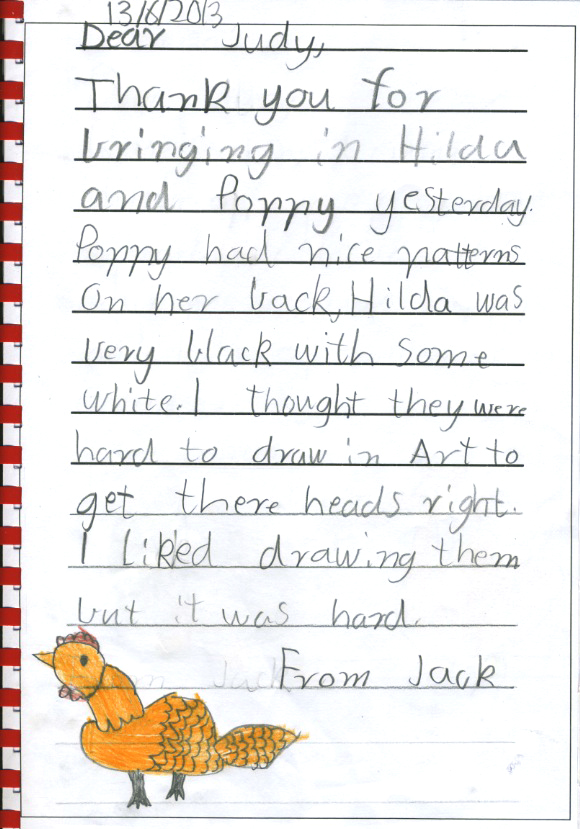 13/6/2013
Dear Judy,
Thank you for
bringing in Hilda
and Poppy yesterday.
Poppy had nice patterns
On her back, Hilda was
very black with some
white. I thought they were
hard to draw in Art to
get there heads right.
I liked drawing them
but it was hard.
From Jack